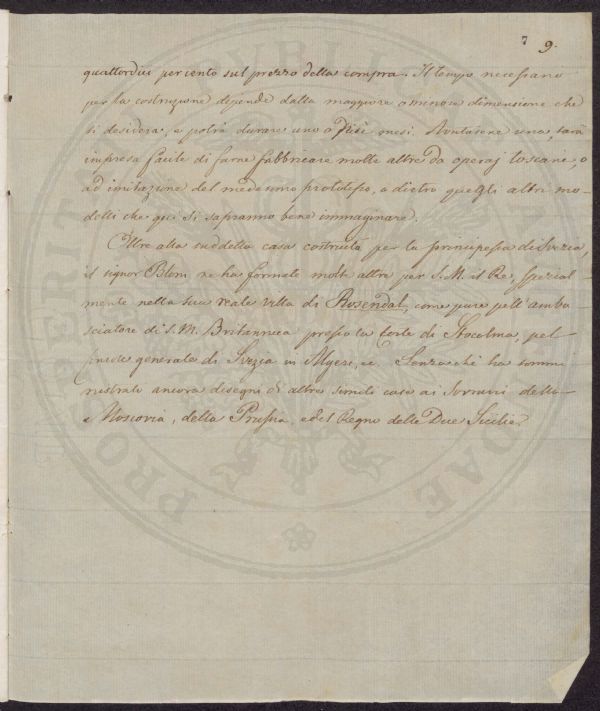 7 9.
quattordici percento sul prezzo della compra. Il tempo necessario
per la costruzione dipende dalla maggiore o minore dimensione che
si desidera, e potrà durare uno o due mesi. Avutasene una, sarà
impresa facile di farne fabbricare molte altre da operaj toscani, o
ad imitazione del medesimo prototipo, o dietro quegli altri mo-
delli che qui si sapranno bene immaginare.
Oltre alla suddetta casa costruita per la principessa di Svezia,
il signor Blom ne ha formate molte altre per S. M. il Re, spezial-
mente nella sua reale villa di Rosendal, come pure pell'amba
sciatore di S. M. Britannica presso la Corte di Stocolma, pel
console generale di Svezia in Algeri, ec. Senza che ha sommi
nistrati ancora disegni di altre simili case ai Sovrani della
Moscovia, della Prussia, e del Regno delle Due Sicilie.
PRO
TUENDAE